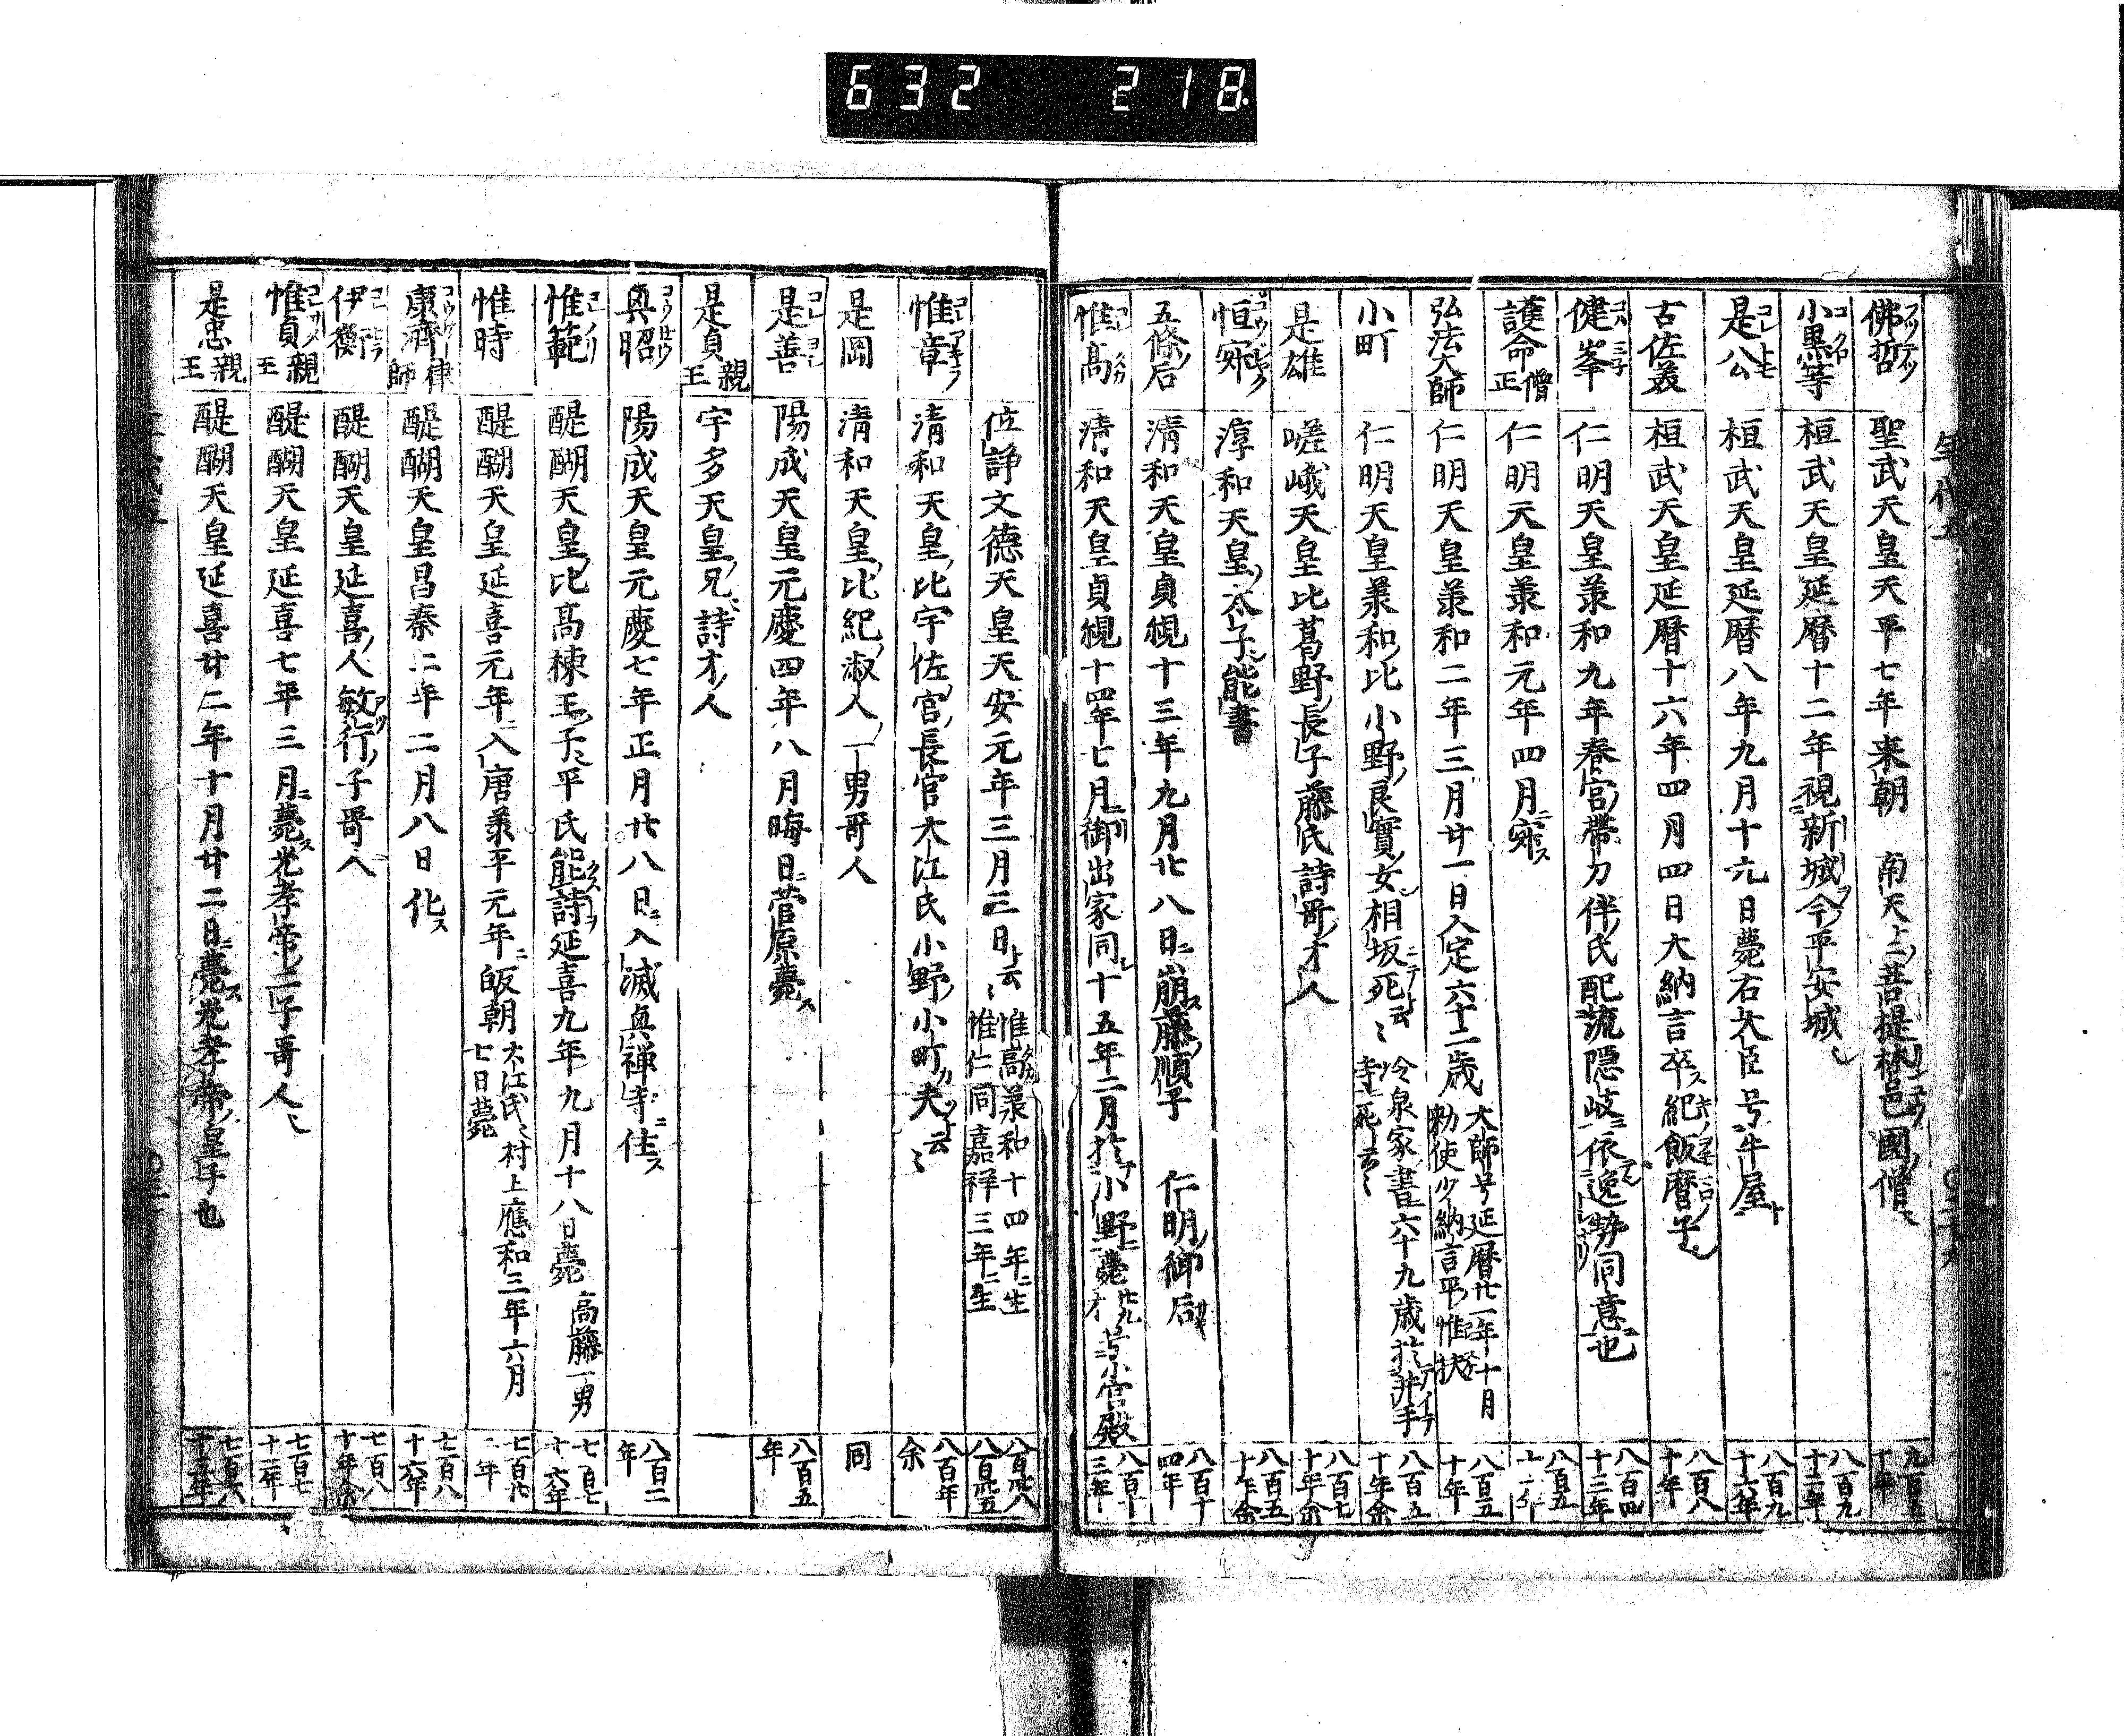 632 218
年代
佛哲 聖武天皇天平七年来朝 南天上菩提林邑國僧 九百五十年
小黒等 桓武天皇延暦十二年視新城今平安城 八百九十二年
是公 桓武天皇延暦八年九月十六日薨右大臣号牛屋 八百九十六年
古佐美 桓武天皇延暦十六年四月四日大納言卒 紀飯暦子 八百八十年
健峯 仁明天皇羕和九年春宮帯刀伴氏配流隠岐依逸勢同意也 八百四十三年
護命僧正 仁明天皇羕和元年四月寂 八百五十
弘法大師 仁明天皇羕和二年三月廿一日入定六十二歳 大師号延暦廿一年十月勅使少納言平惟扶 八百五十年
小町 仁明天皇羕和比小野良實女相坂死云〻 冷泉家書六十九歳於井手寺死云〻 八百五十年余
是雄 嵯峨天皇比葛野長子藤氏詩哥才人 八百七十年余
恒寂 淳和天皇太子能書 八百五十年余
五條后 清和天皇貞観十三年九月廿八日崩藤順子 仁明御后 八百十四年
惟髙 清和天皇貞観十四年七月御出家同十五年二月於小野薨 廿九才 号小宮殿 八百十三年
位諍文徳天皇天安元年三月三日云〻 惟髙羕和十四年生 惟仁同嘉祥三年生 八百卅八 八百卅五
惟章 清和天皇比宇佐宮長官大江氏小野小町夫云〻 八百年余
是岡 清和天皇比紀淑人一男哥人 同
是善 陽成天皇元慶四年八月晦日菅原薨 八百五年
是貞親王 宇多天皇兄詩才人
真昭 陽成天皇元慶七年正月廿八日入滅真禅寺住 八百二年
惟範 醍醐天皇比髙棟王子平氏能詩延喜九年九月十八日薨 高藤一男 七百七十六年
惟時 醍醐天皇延喜元年入唐羕平元年皈朝 大江氏村上應和三年六月七日薨
康濟律師 醍醐天皇昌泰二年二月八日化 七百八十六年
伊衡 醍醐天皇延喜人敏行子哥人 七百八十年余
惟貞親王 醍醐天皇延喜七年三月薨光孝帝二子哥人 七百七十二年
是忠親王 醍醐天皇延喜廿二年十月廿二日薨光孝帝皇子也